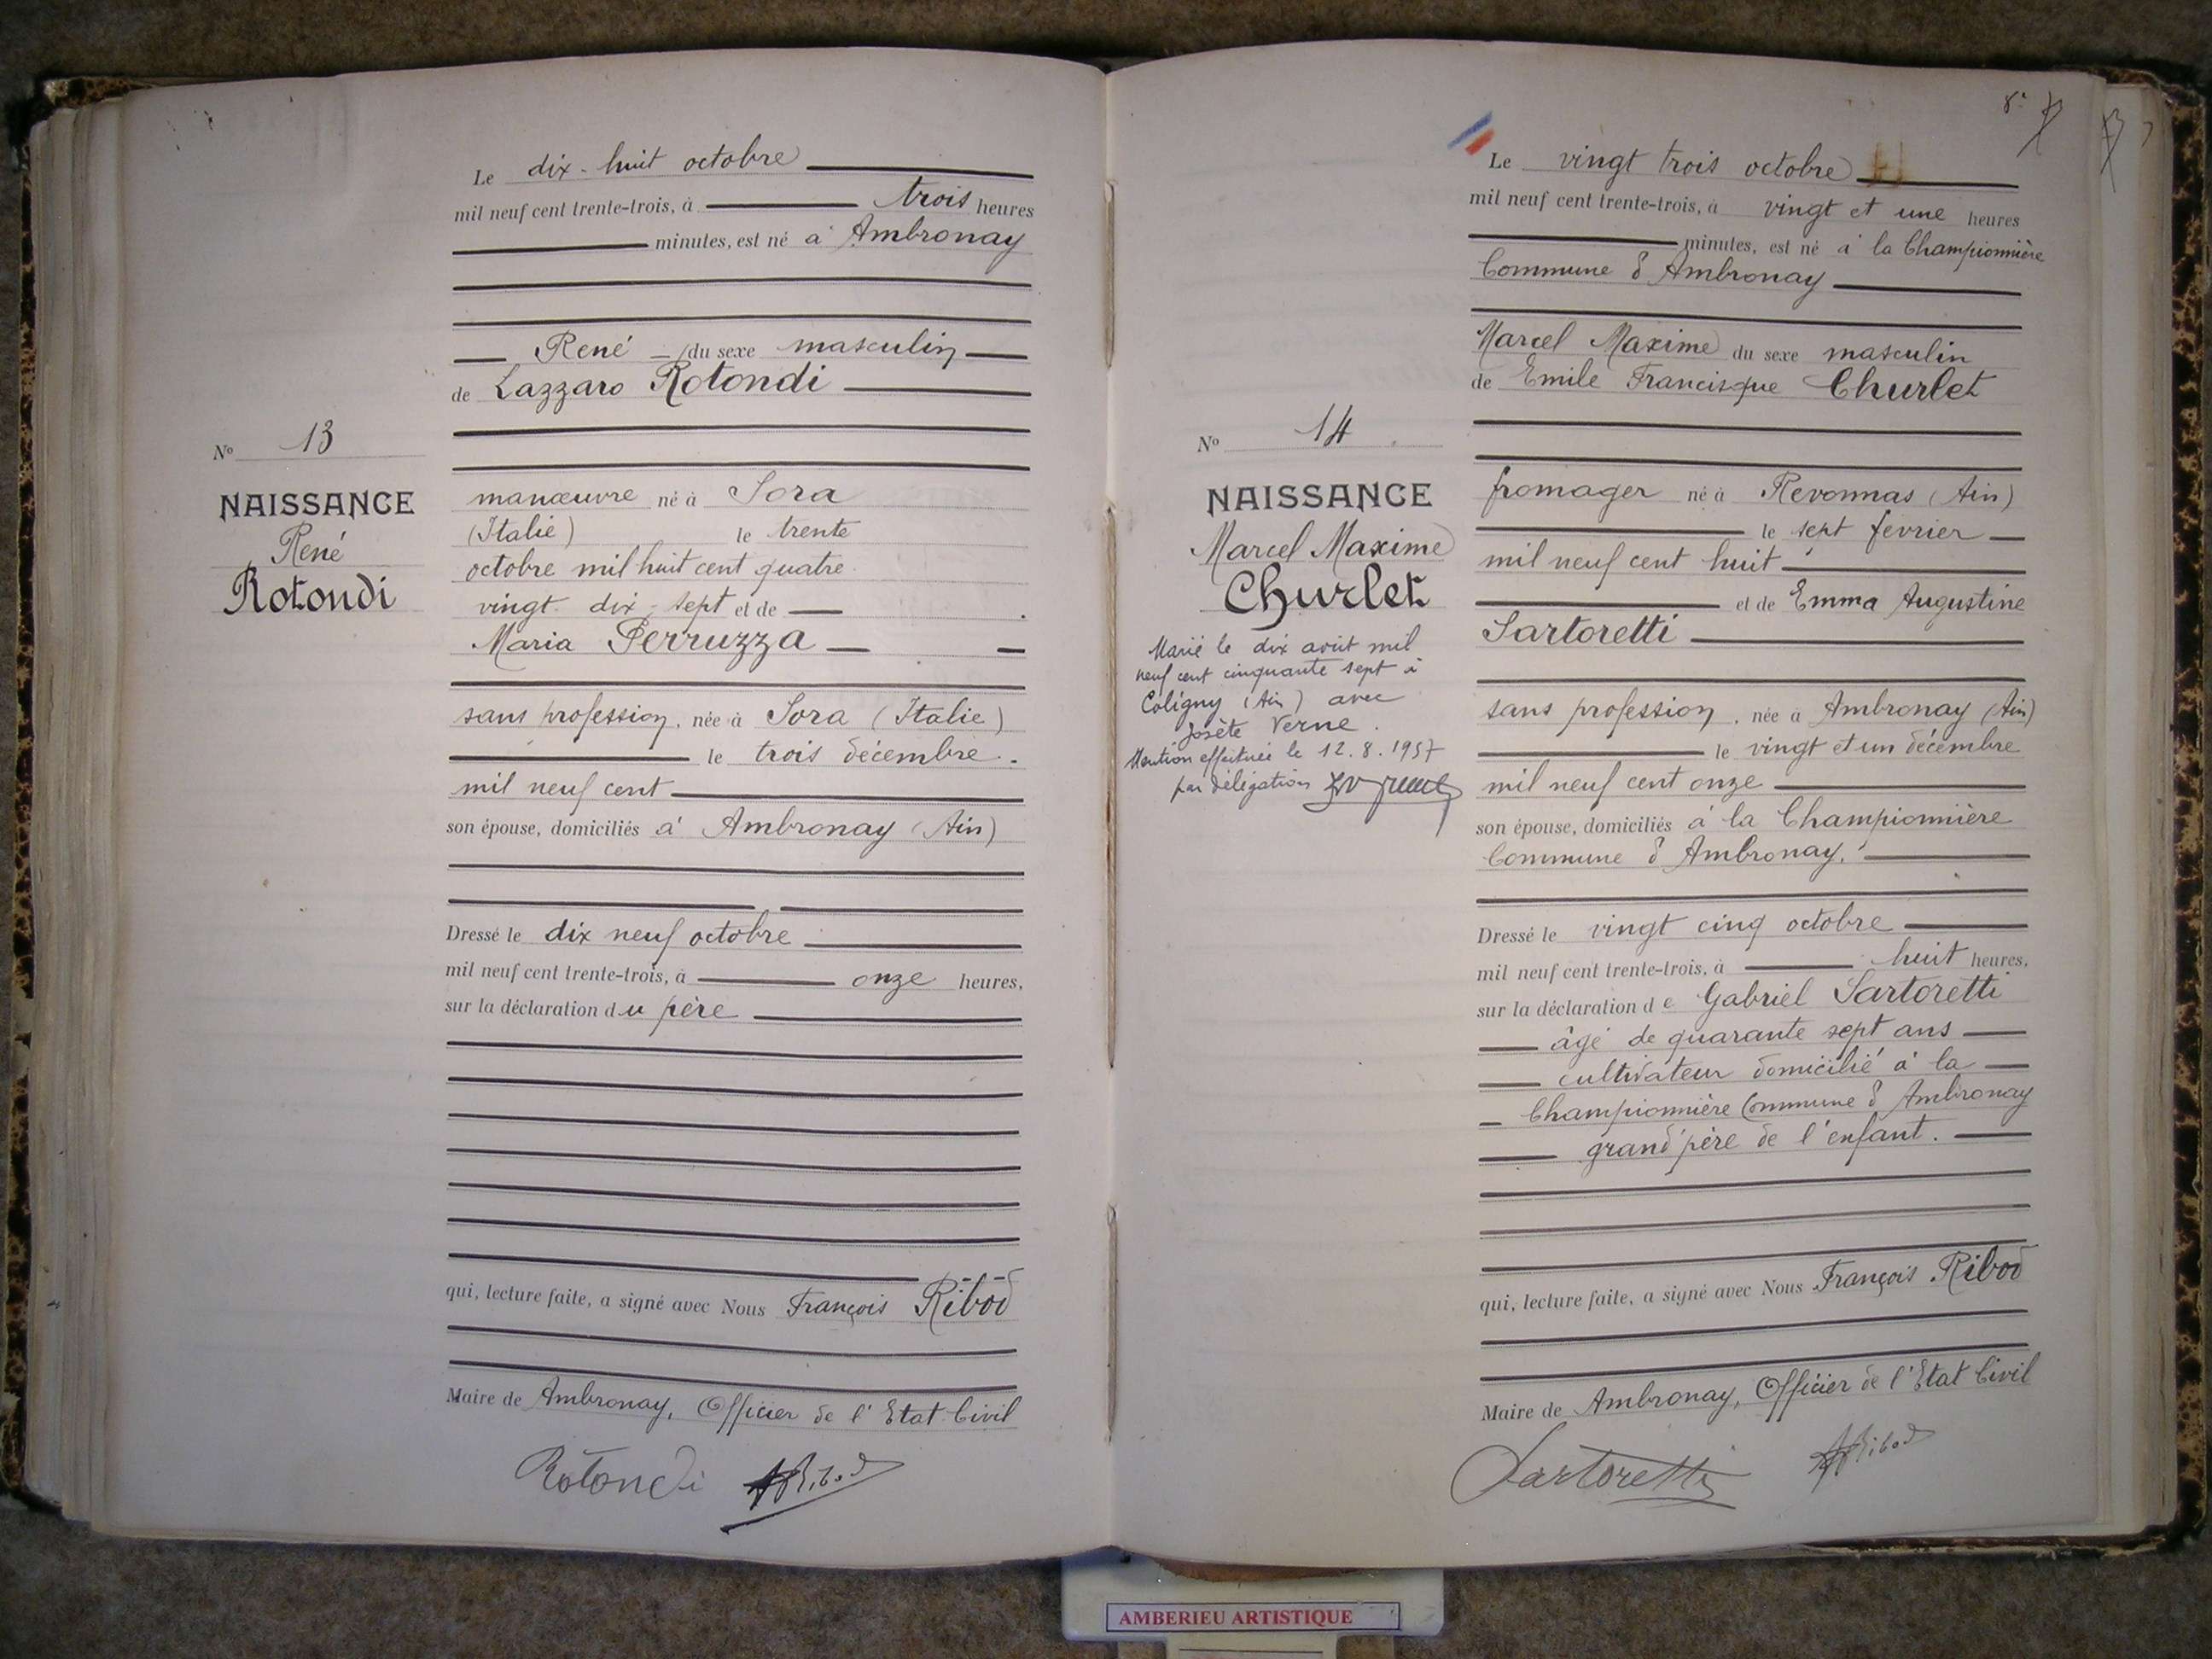 Le dix-huit octobre
mil neuf cent trente-trois, à trois heures
minutes, est né à Ambronay
René du sexe masculin
de Lazzaro Rotondi
No 13
NAISSANCE
René
Rotondi
manœuvre né à Sora
(Italie) le trente
octobre mil huit cent quatre
vingt dix-sept et de
Maria Perruzza
sans profession, née à Sora (Italie)
le trois décembre
mil neuf cent
son épouse, domiciliés à Ambronay (Ain)
Dressé le dix neuf octobre
mil neuf cent trente-trois, à onze heures,
sur la déclaration du père
qui, lecture faite, a signé avec Nous François Ribod
Maire de Ambronay, Officier de l'Etat Civil
Rotondi Ribod
Le vingt trois octobre
mil neuf cent trente-trois, à vingt et une heures
minutes, est né à la Championnière
Commune d'Ambronay
Marcel Maxime du sexe masculin
de Emile Francisque Churlet
No 14
NAISSANCE
Marcel Maxime
Churlet
Marié le dix août mil
neuf cent cinquante sept à
Coligny (Ain) avec
Josète Verne.
Mention effectuée le 12.8.1957
par délégation
fromager né à Revonnas (Ain)
le sept fevrier
mil neuf cent huit
et de Emma Augustine
Sartoretti
sans profession, née à Ambronay (Ain)
le vingt et un décembre
mil neuf cent onze
son épouse, domiciliés à la Championnière
Commune d'Ambronay.
Dressé le vingt cinq octobre
mil neuf cent trente-trois, à huit heures,
sur la déclaration de Gabriel Sartoretti
âgé de quarante sept ans
cultivateur domicilié à la
Championnière Commune d'Ambronay
grand'père de l'enfant.
qui, lecture faite, a signé avec Nous François Ribod
Maire de Ambronay, Officier de l'Etat Civil
Sartoretti Ribod
AMBERIEU ARTISTIQUE